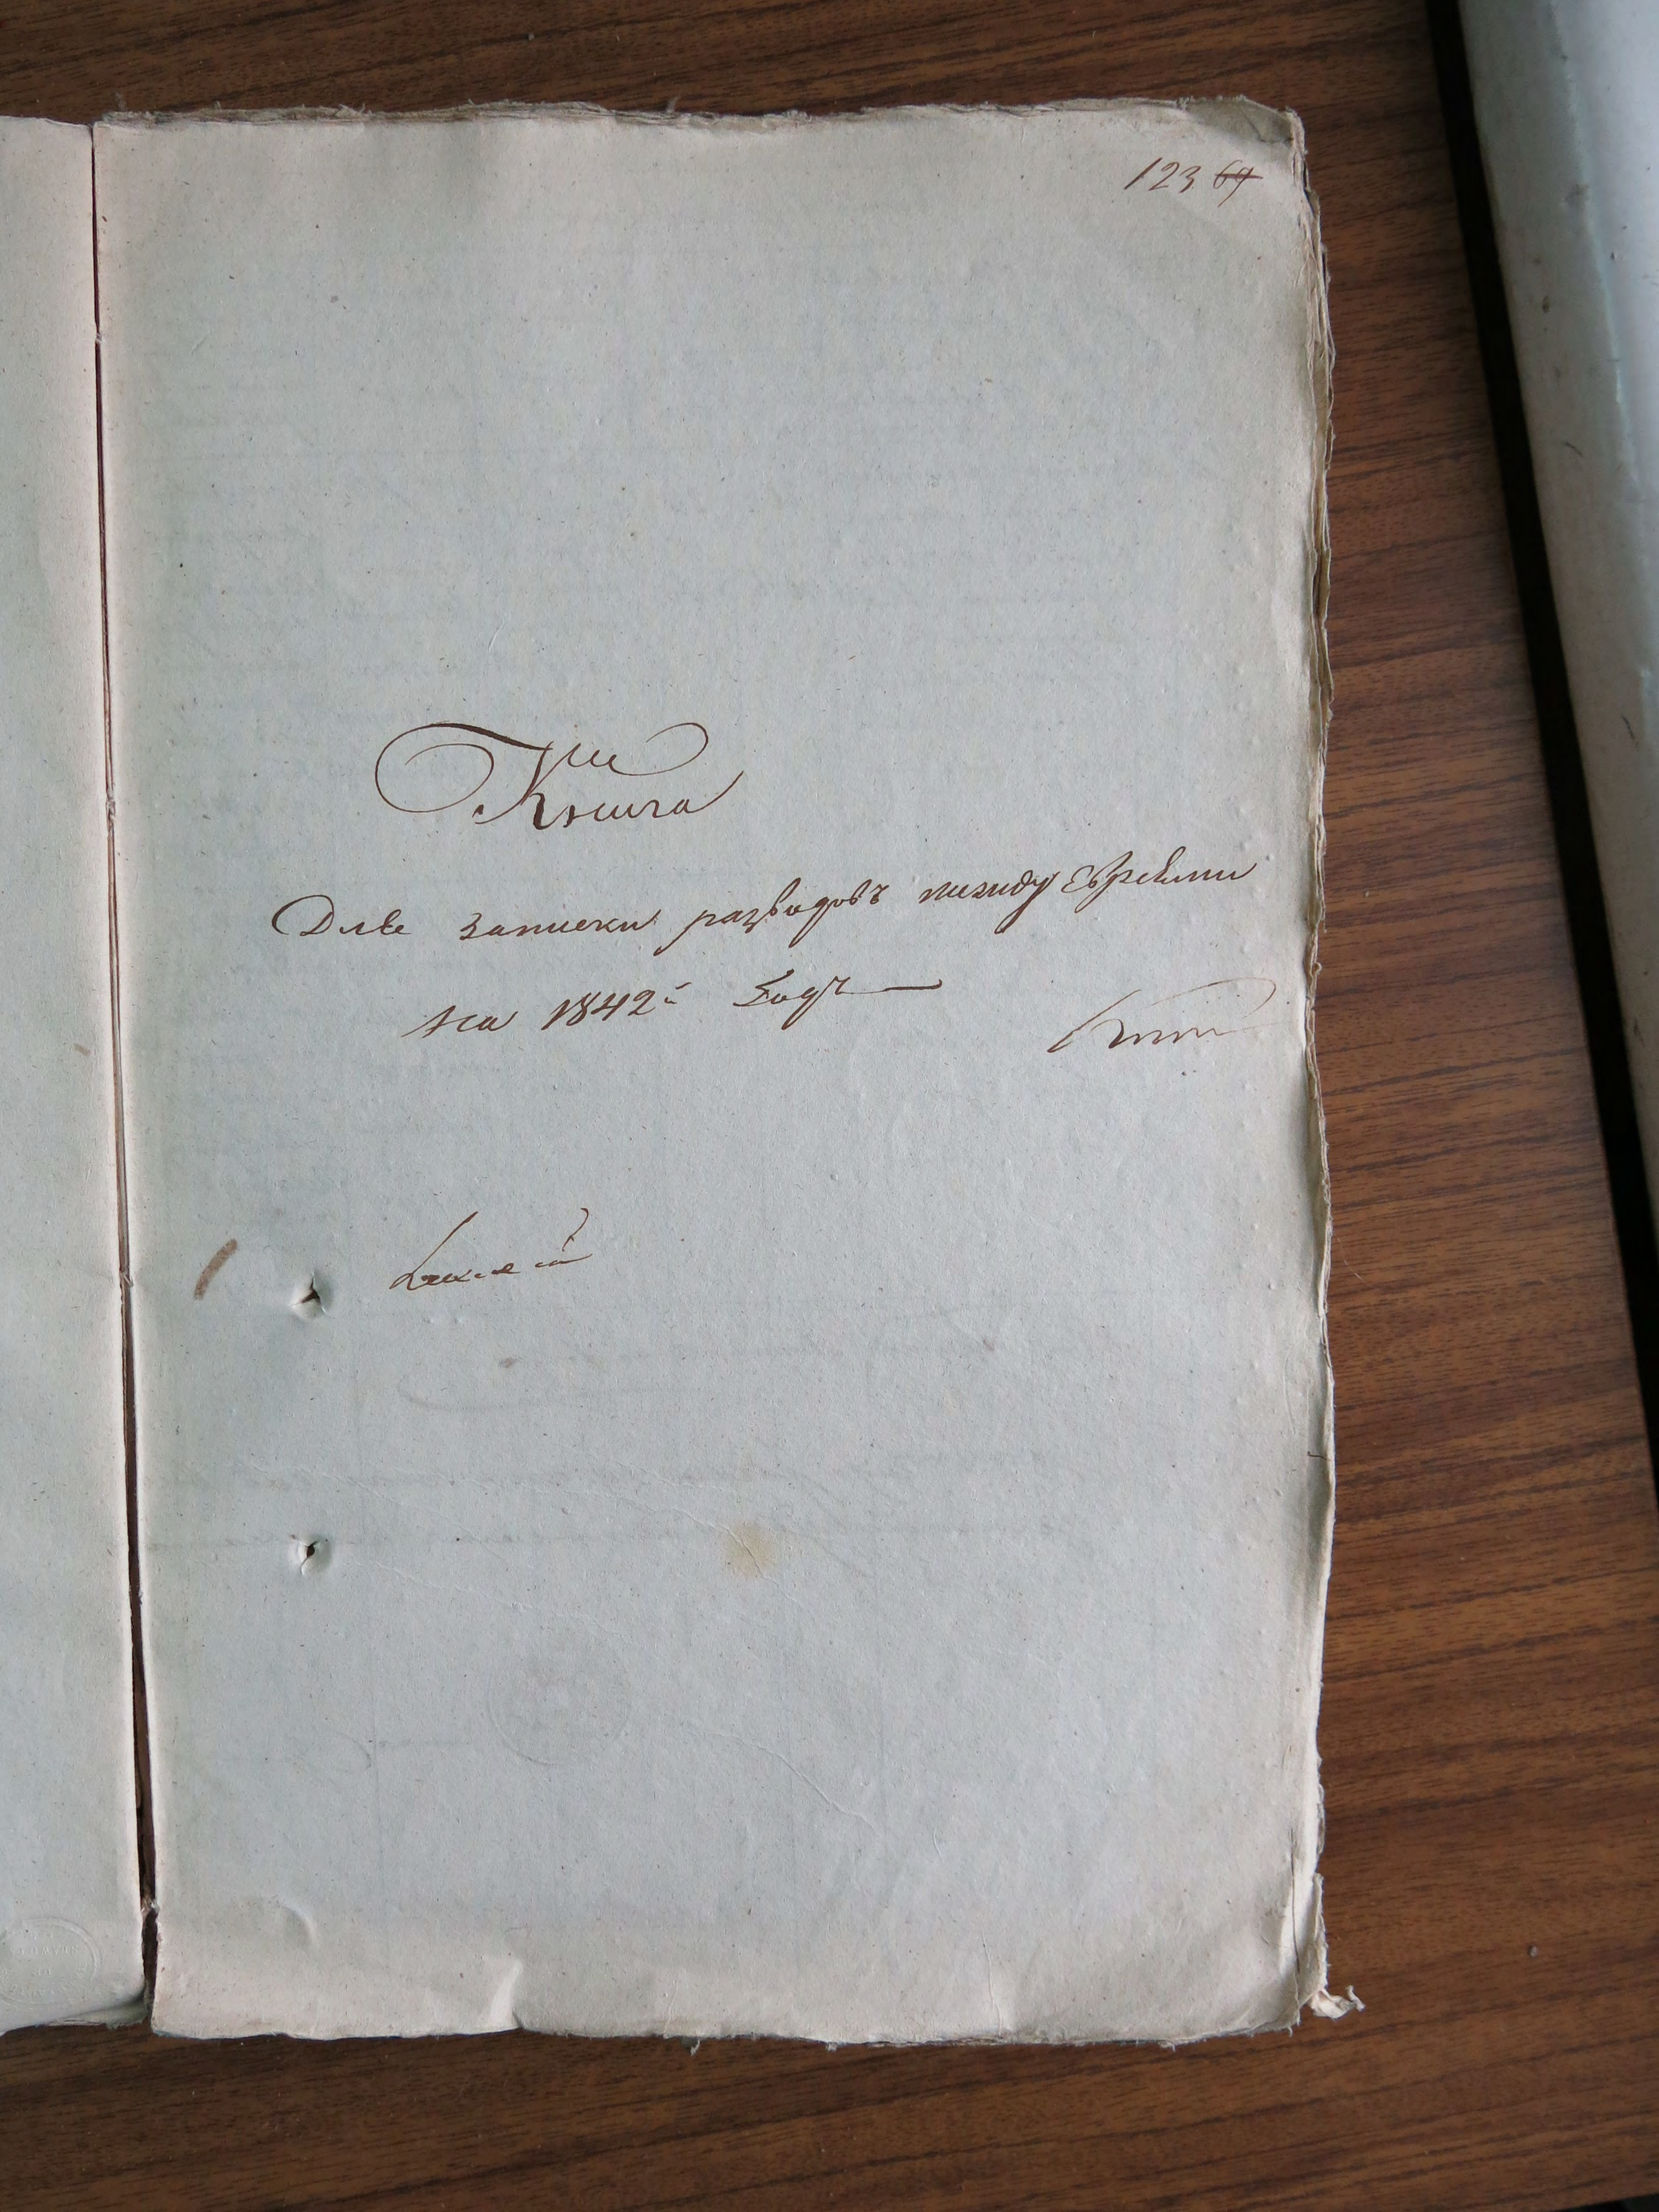 123 69
Книга
Для записки разводовъ между Евреями
на 1842й Годъ